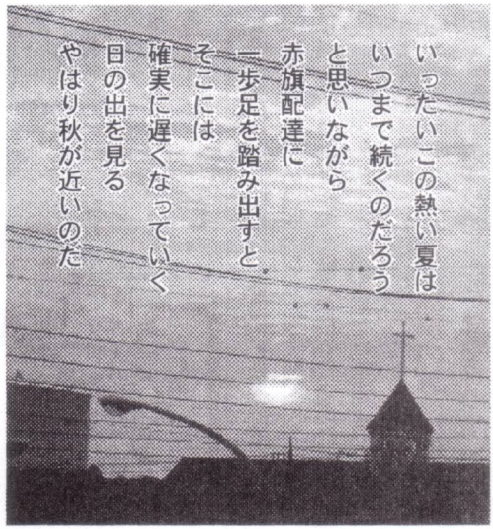 いったいこの熱い夏は
いつまで続くのだろう
と思いながら
赤旗配達に
一歩足を踏み出すと
そこには
確実に遅くなっていく
日の出を見る
やはり秋が近いのだ